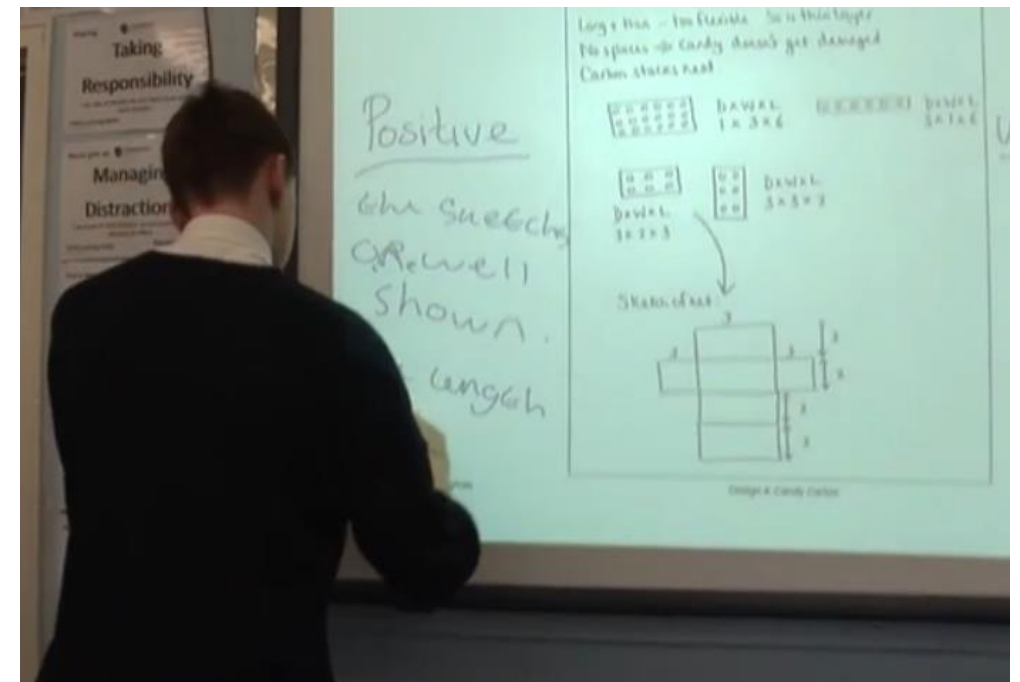 Taking
Responsibility
Managin
Distraction
Positive
the sketches
are well
shown.
length
Long & thin - too flexible So is thin layer
No spaces so candy doesn't get damaged
Carton stacks neat
DxWxL
1 x 3 x 6
DxWxL
3x1x6
DxWxL
3x2x3
DxWxL
3x3x2
Sketch of net
3
3
3
Design A Candy Carton